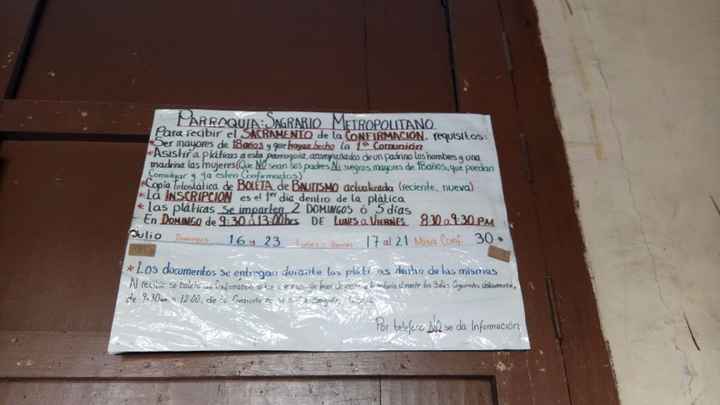 PARRAQUIA: SAGRARIO METROPOLITANO
Para recibir el SACRAMENTO de la CONFIRMACION, requisitos:
*Ser mayores de 18años y que hayan hecho la 1ª Comunión
*Asistir a pláticas a esta parroquia, acompañados de un padrino los hombres y una
madrina las mujeres (Que NO sean los padres NI suegros, mayores de 18años, que puedan
Comulgar y ya estén Confirmados)
*Copia fotostática de BOLETA de BAUTISMO actualizada (reciente, nueva)
*LA INSCRIPCION es el 1er día dentro de la plática
* Las pláticas se imparten 2 DOMINGOS ó 5 días
En DOMINGO de 9:30 a 13:00hrs DE LUNES a VIERNES 8:30 a 9:30 PM
Julio Domingos 16 y 23 Lunes a Viernes 17 al 21 Misa Conf. 30
* Los documentos se entregan durante las pláticas dentro de las mismas
Al recibir su boleta de Confirmación
de 9:30 a 12:00, de la
Por teléfono NO se da Información